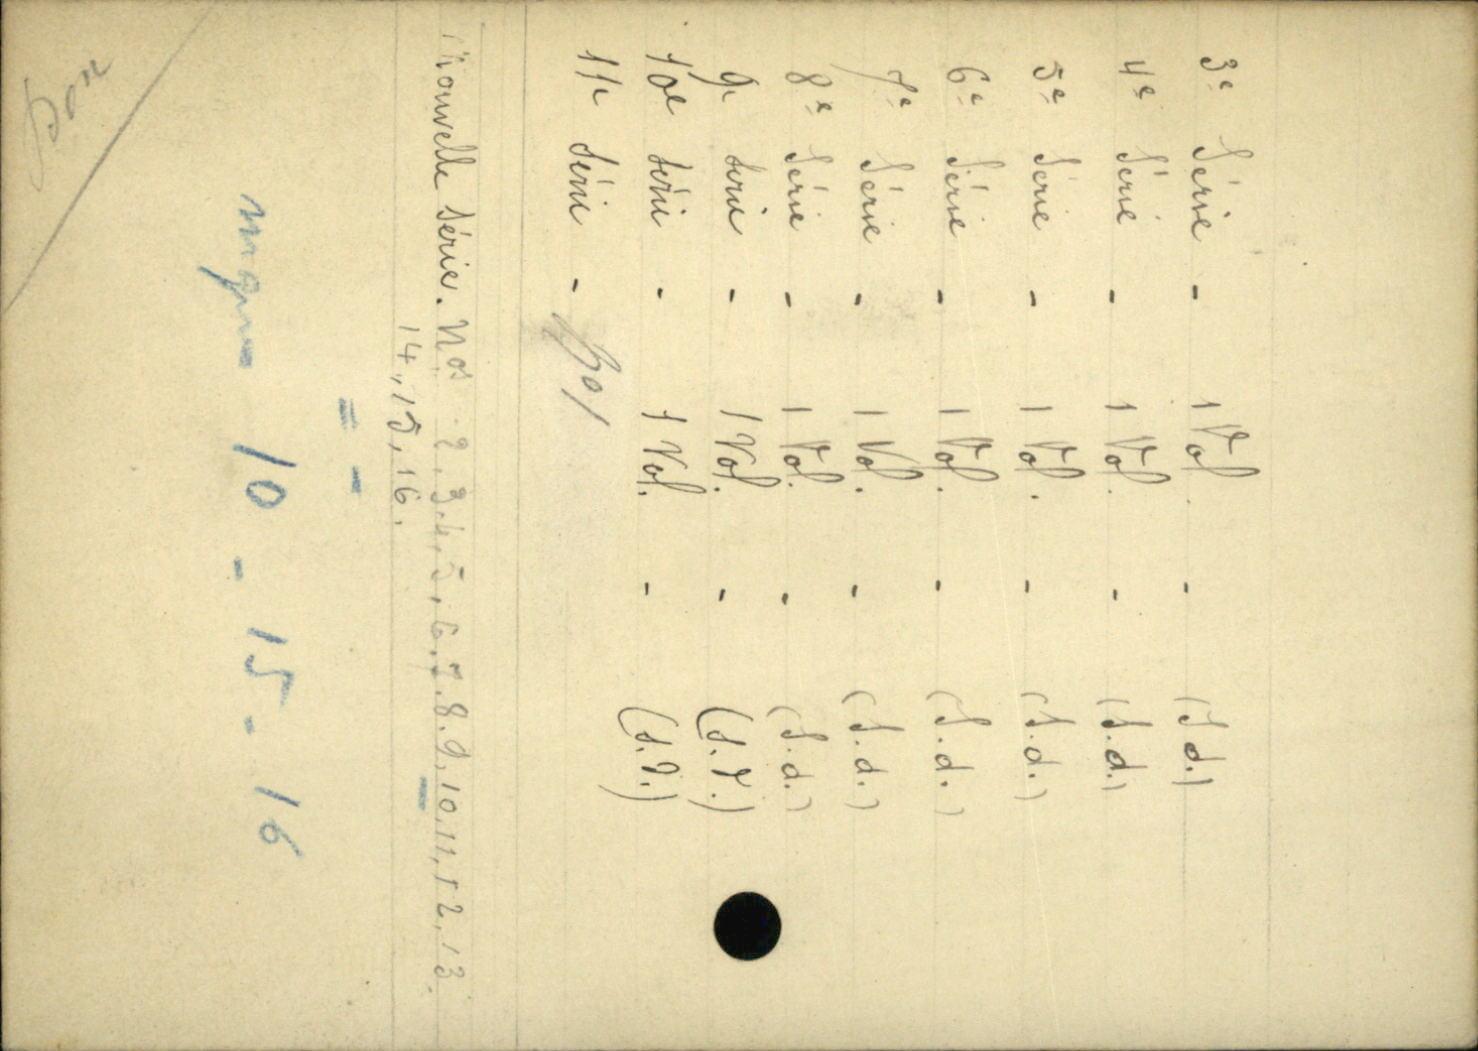 3e Série - 1 Vol. - (S d.)
4e Série - 1 Vol. - (S.d.)
5e Série - 1 Vol. - (S.d.)
6e Série - 1 Vol. - (S.d.)
7e Série - 1 Vol. - (S.d.)
8e Série - 1 Vol. - (S.d.)
9e Série - 1 Vol. - (s.d.)
10e Série - 1 Vol. - (s.d.)
11e Série -
Nouvelle Série. Nos 2, 3, 4, 5, 6, 7, 8, 9, 10, 11, 12, 13.
14, 15, 16.
10 - 15 - 16